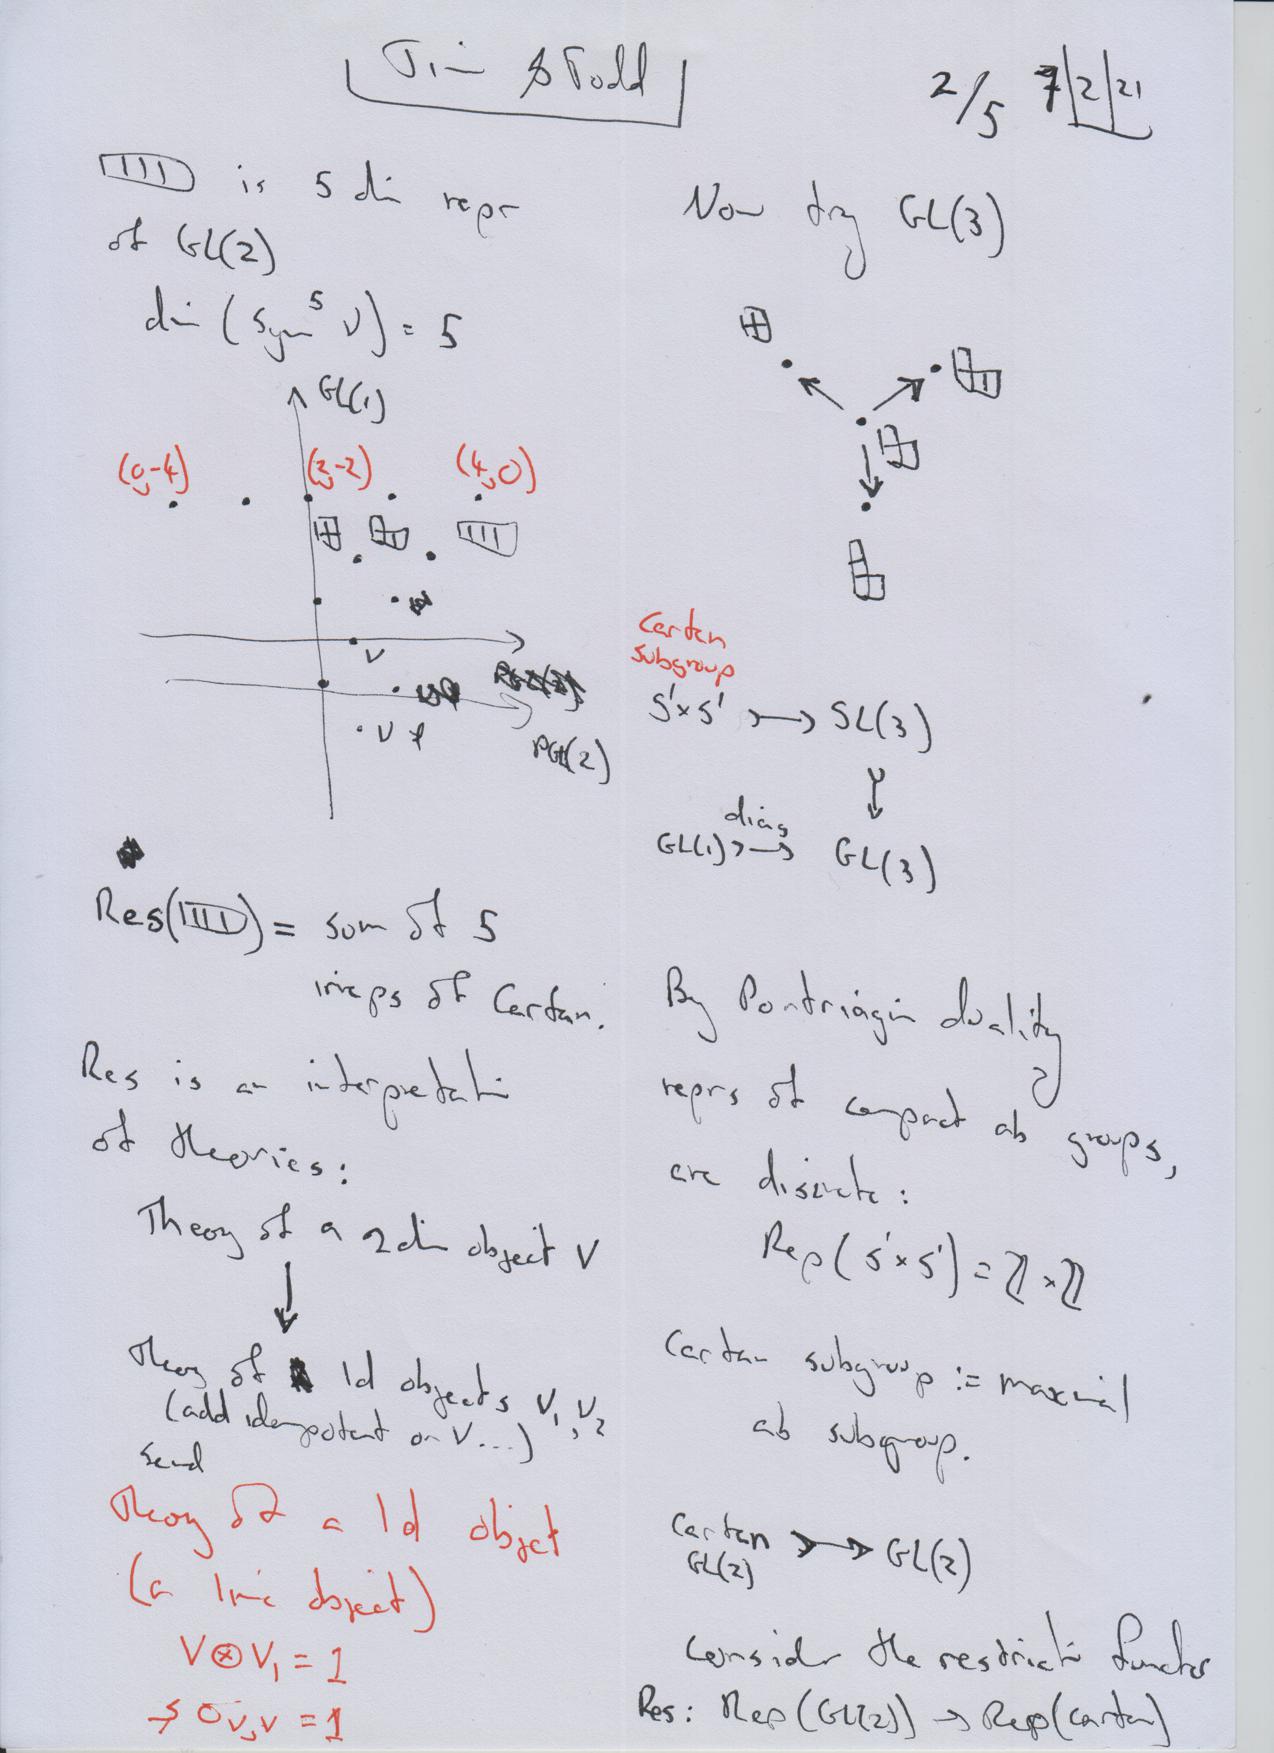 2/5 7|2|21
is 5 dim repr
of GL(2)
dim (Sym⁵ V) = 5
GL(1)
(0,-4) (2,-2) (4,0)
V
V
PGL(2)
Res( ) = sum of 5
irreps of Cartan.
Res is an interpretation
of theories:
Theory of a 2 dim object V
↓
Theory of 1d objects V₁, V₂
(add idempotent on V...)
send
Theory of a 1d object
(a line object)
V⊗V₁ = 1
V,V = 1
Now try GL(3)
Cartan
subgroup
S¹×S¹ >→ SL(3)
diag
GL(1) >→ GL(3)
By Pontriagin duality
reprs of compact ab groups,
are discrete:
Rep(S¹×S¹) = ℤ×ℤ
Cartan subgroup := maximal
ab subgroup.
Cartan
GL(2) >→ GL(2)
Consider the restriction functor
Res: Rep(GL(2)) → Rep(Cartan)